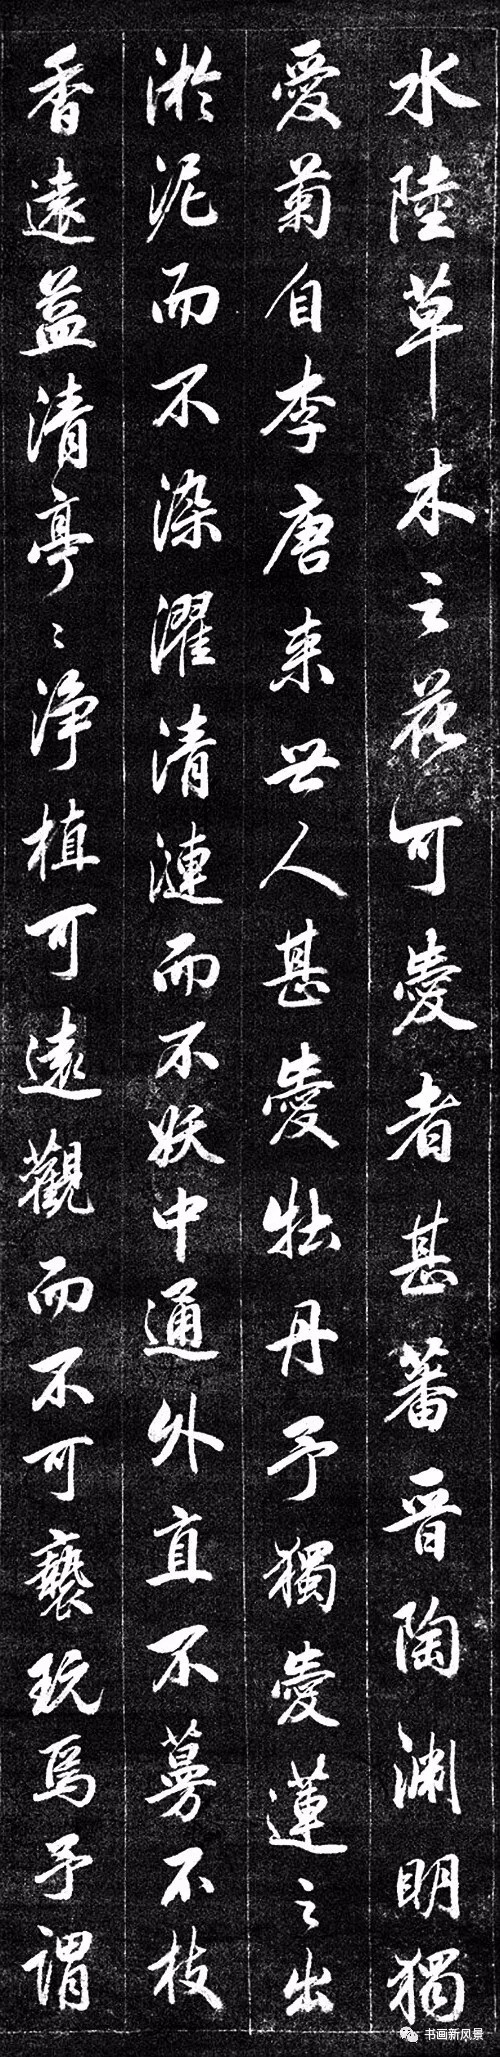 水陸草木之花可愛者甚蕃晋陶渊明獨
愛菊自李唐来世人甚愛牡丹予獨愛蓮之出
淤泥而不染濯清漣而不妖中通外直不蔓不枝
香遠益清亭〻净植可遠觀而不可褻玩焉予謂
书画新风景